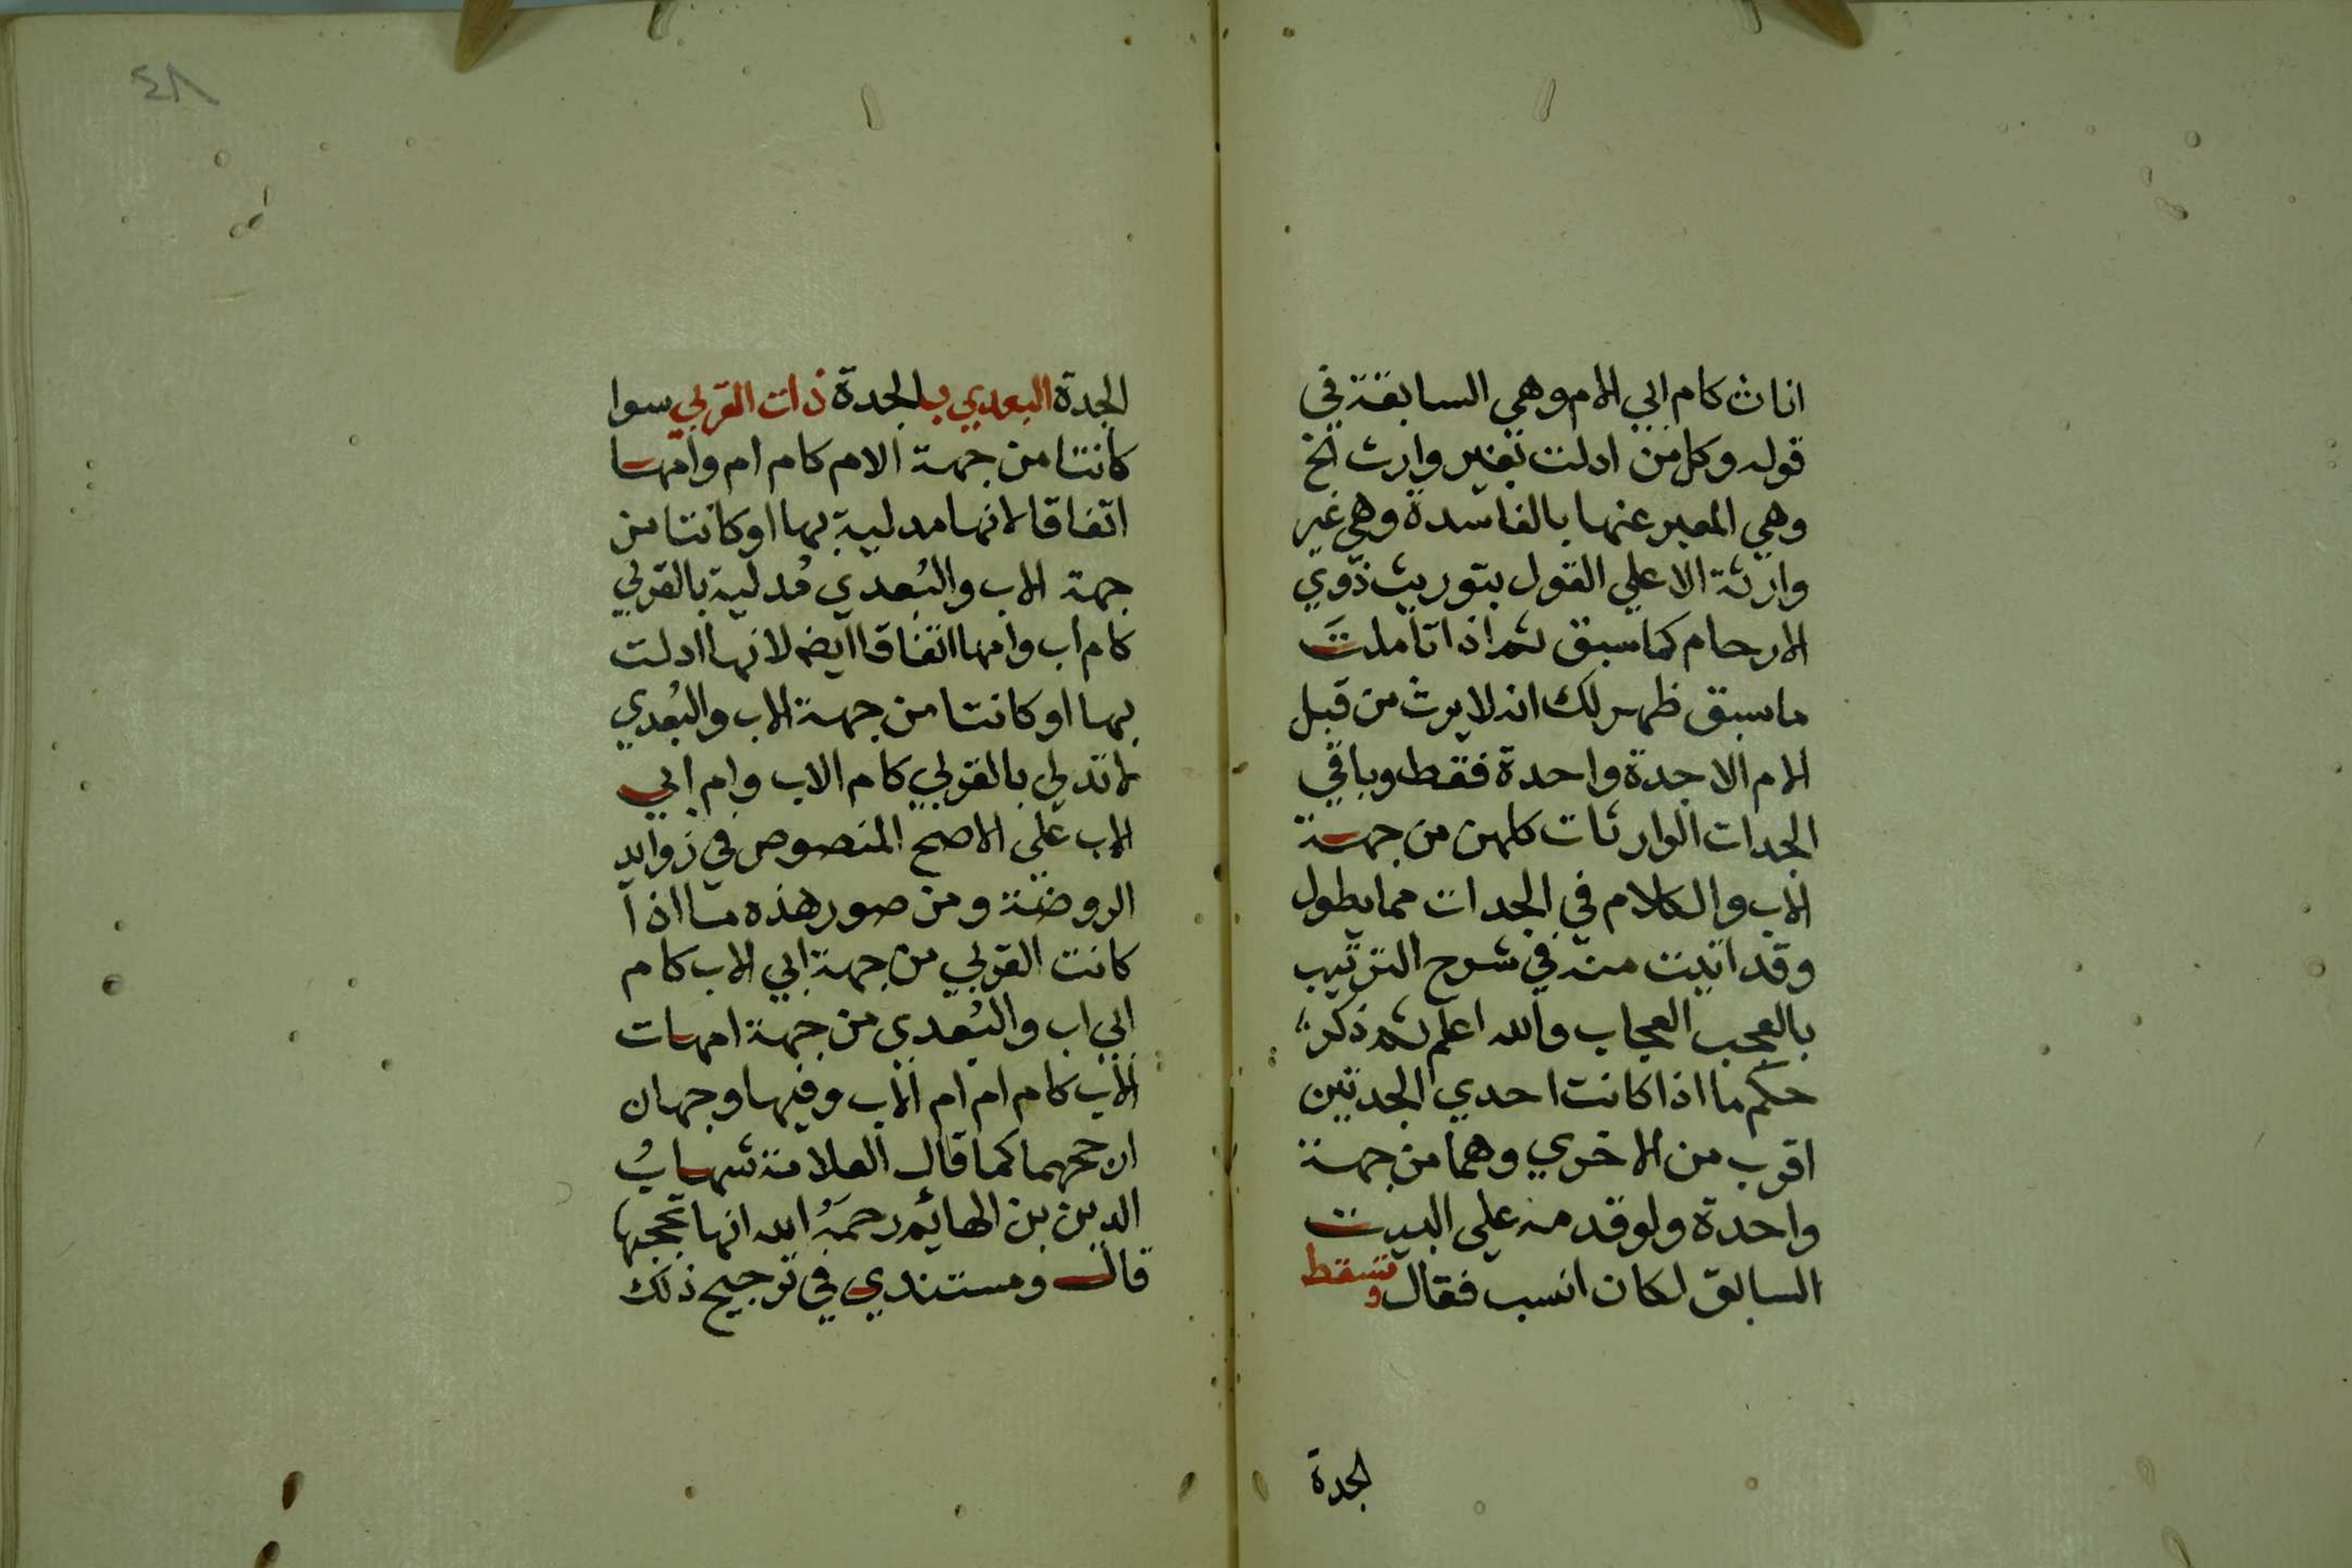 اناث كام ابي الام وهي السابقة في
قوله وكل من ادلت بغير وارث الخ
وهي المعبر عنها بالفاسدة وهي غير
وارثة الا علي القول بتوريث ذوي
الارحام كما سبق ثم اذا تاملت
ما سبق ظهر لك انه لا يرث من قبل
الام الا جدة واحدة فقط وباقي
الجدات الوارثات كلهن من جهة
الاب والكلام في الجدات مما يطول
وقد اتيت منه في شرح الترتيب
بالعجب العجاب والله اعلم ثم ذكر
حكم ما اذا كانت احدي الجدتين
اقرب من الاخري وهما من جهة
واحدة ولو قدمه علي البيت
السابق لكان انسب فقال وتسقط
لجدة
٤٨
الجدة البعدي بالجدة ذات القربي سوا
كانتا من جهة الام كام ام وامها
اتفاقا لانها مدلية بها او كانتا من
جهة الاب والبُعدي مُدلية بالقربي
كام اب وامها اتفاقا ايضا لانها ادلت
بها او كانتا من جهة الاب والبُعدي
لا تدلي بالقربي كام الاب وام ابي
الاب علي الاصح المنصوص في زوايد
الروضة ومن صور هذه ما اذا
كانت القربي من جهة ابي الاب كام
ابي اب والبُعدي من جهة امهات
الاب كام ام ام الاب وفيها وجهان
ارجحهما كما قال العلامة شهابُ
الدين بن الهائم رحمَهُ الله انها تحجبها
قال ومستندي في ترجيح ذلك